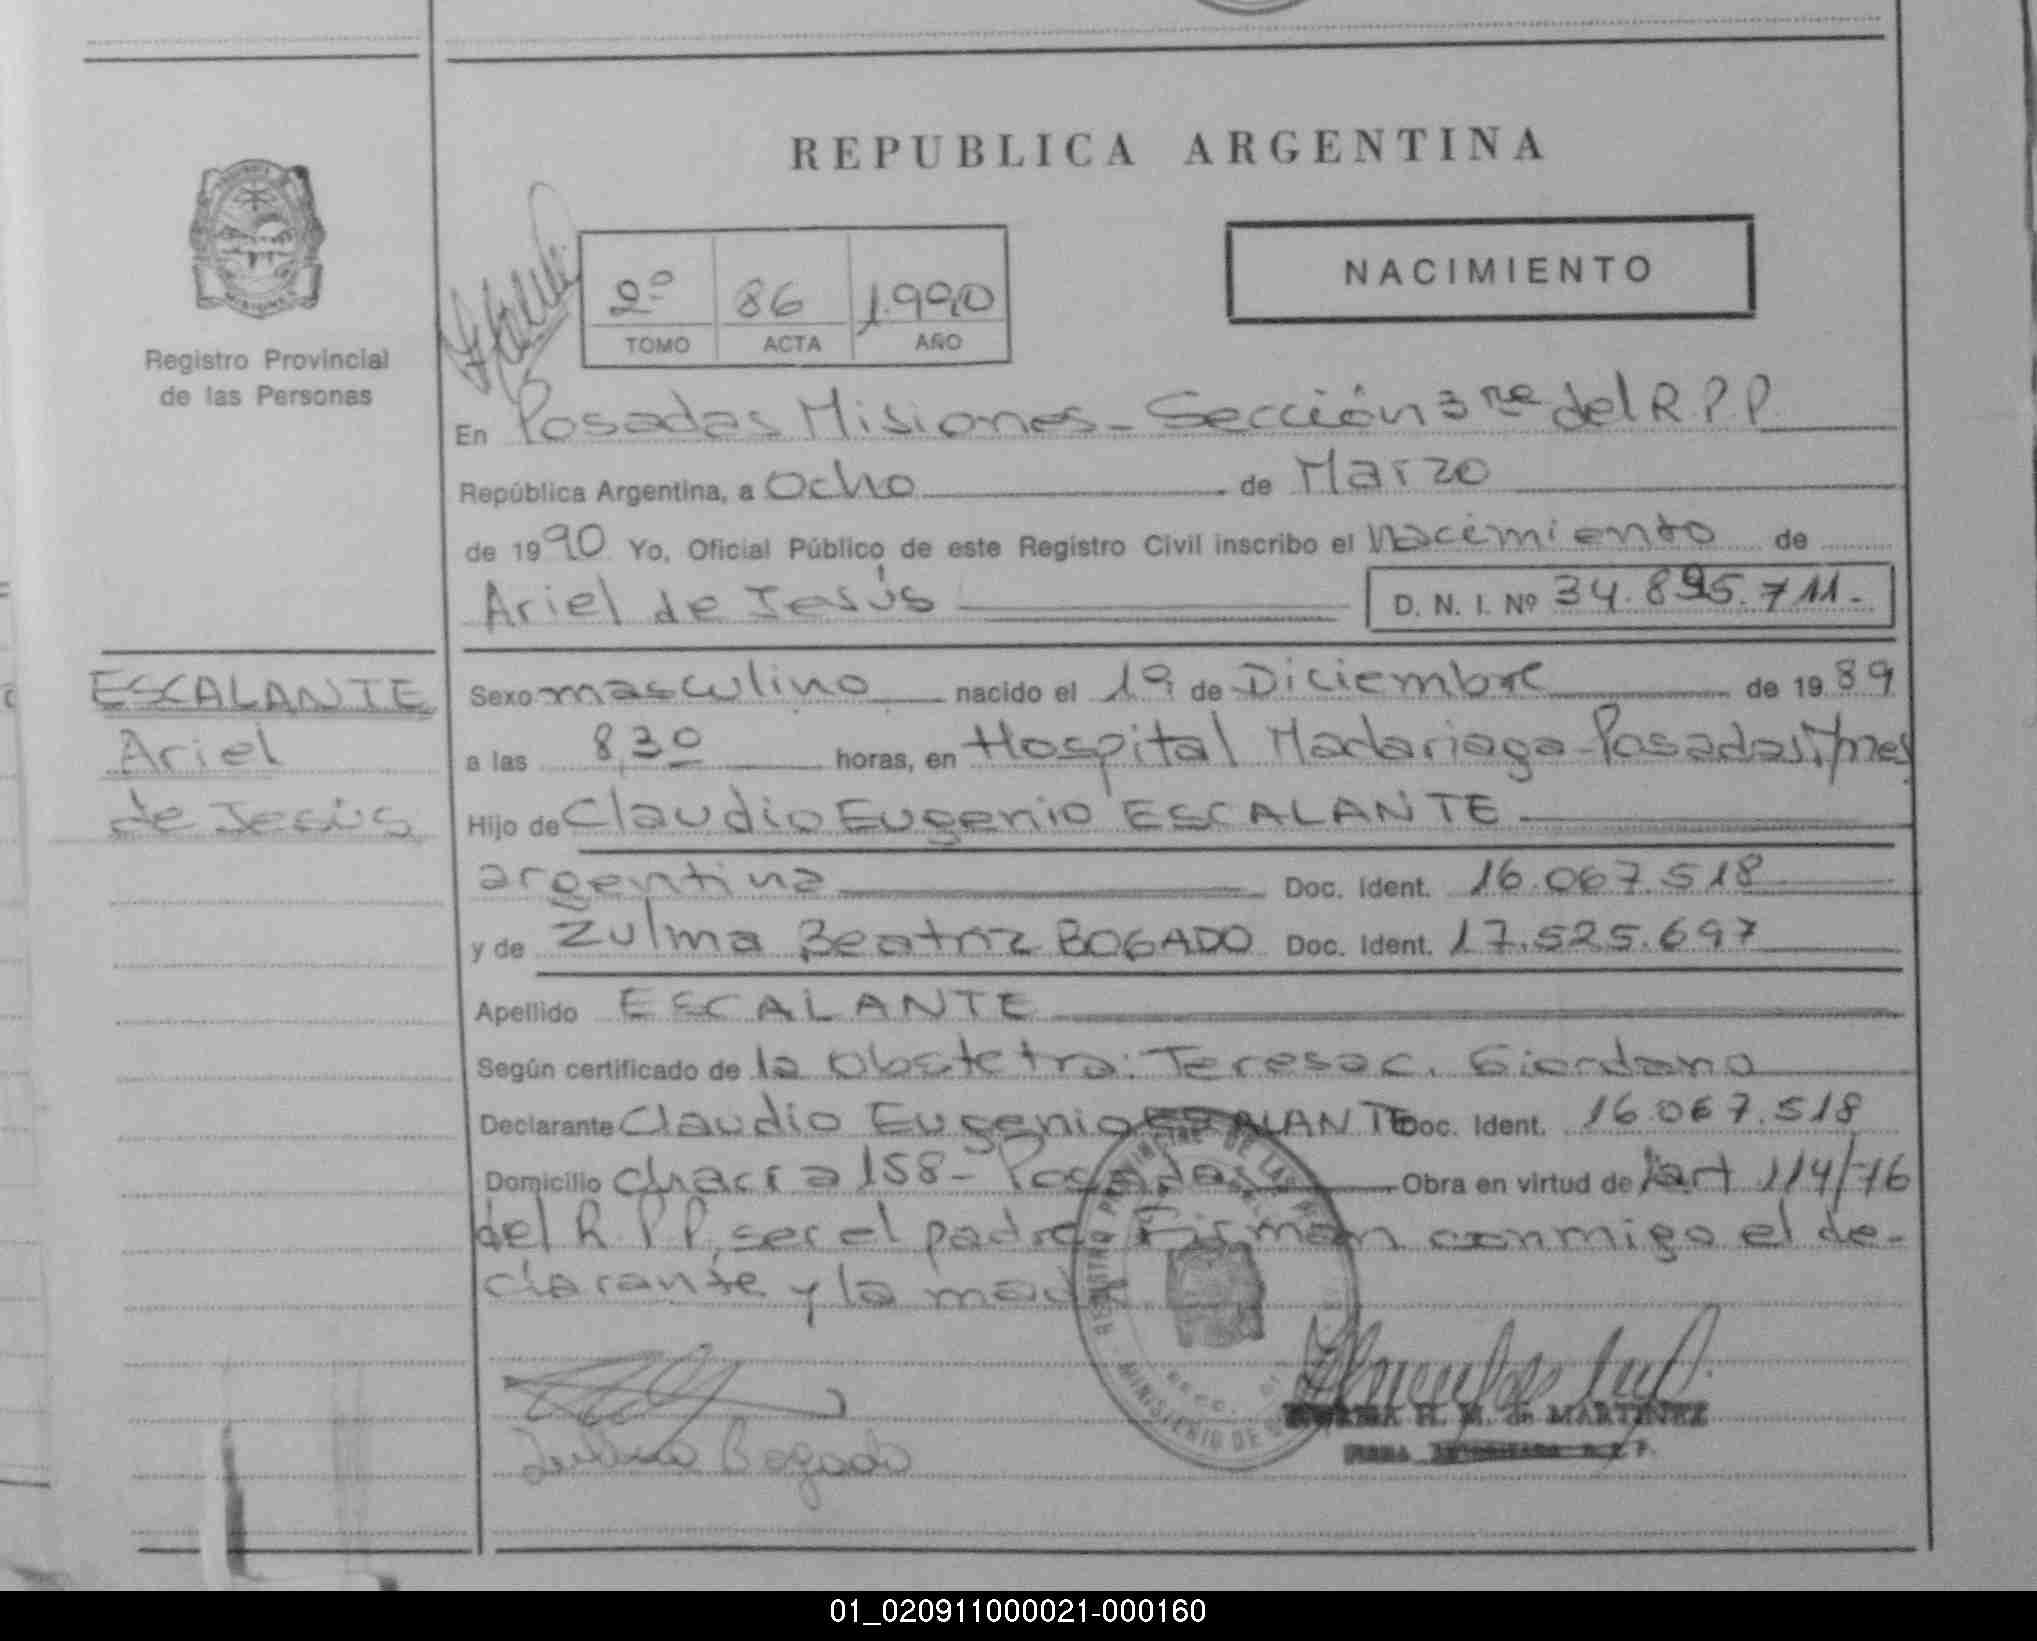 REPUBLICA ARGENTINA
NACIMIENTO
2º 86 1990
TOMO ACTA AÑO
Registro Provincial
de las Personas
En Posadas Misiones - Sección 3ra del R.P.P.
República Argentina, a Ocho de Marzo
de 1990 Yo, Oficial Público de este Registro Civil inscribo el Nacimiento de
Ariel de Jesús D. N. I. Nº 34.895.711.-
ESCALANTE
Ariel
de Jesús
Sexo masculino nacido el 19 de Diciembre de 1989
a las 8,30 horas, en Hospital Madariaga - Posadas Mnes
Hijo de Claudio Eugenio ESCALANTE
argentina Doc. Ident. 16.067.518
y de Zulma Beatriz BOGADO Doc. Ident. 17.525.697
Apellido ESCALANTE
Según certificado de la Obstetra: Teresa C. Giordano
Declarante Claudio Eugenio ESCALANTE Doc. Ident. 16.067.518
Domicilio chacra 158 - Posadas Obra en virtud de art 114/76
del R.P.P, ser el padre Firman conmigo el de-
clarante y la madre
Bogado
H. M. de MARTINEZ
MINISTERIO DE
01_020911000021-000160